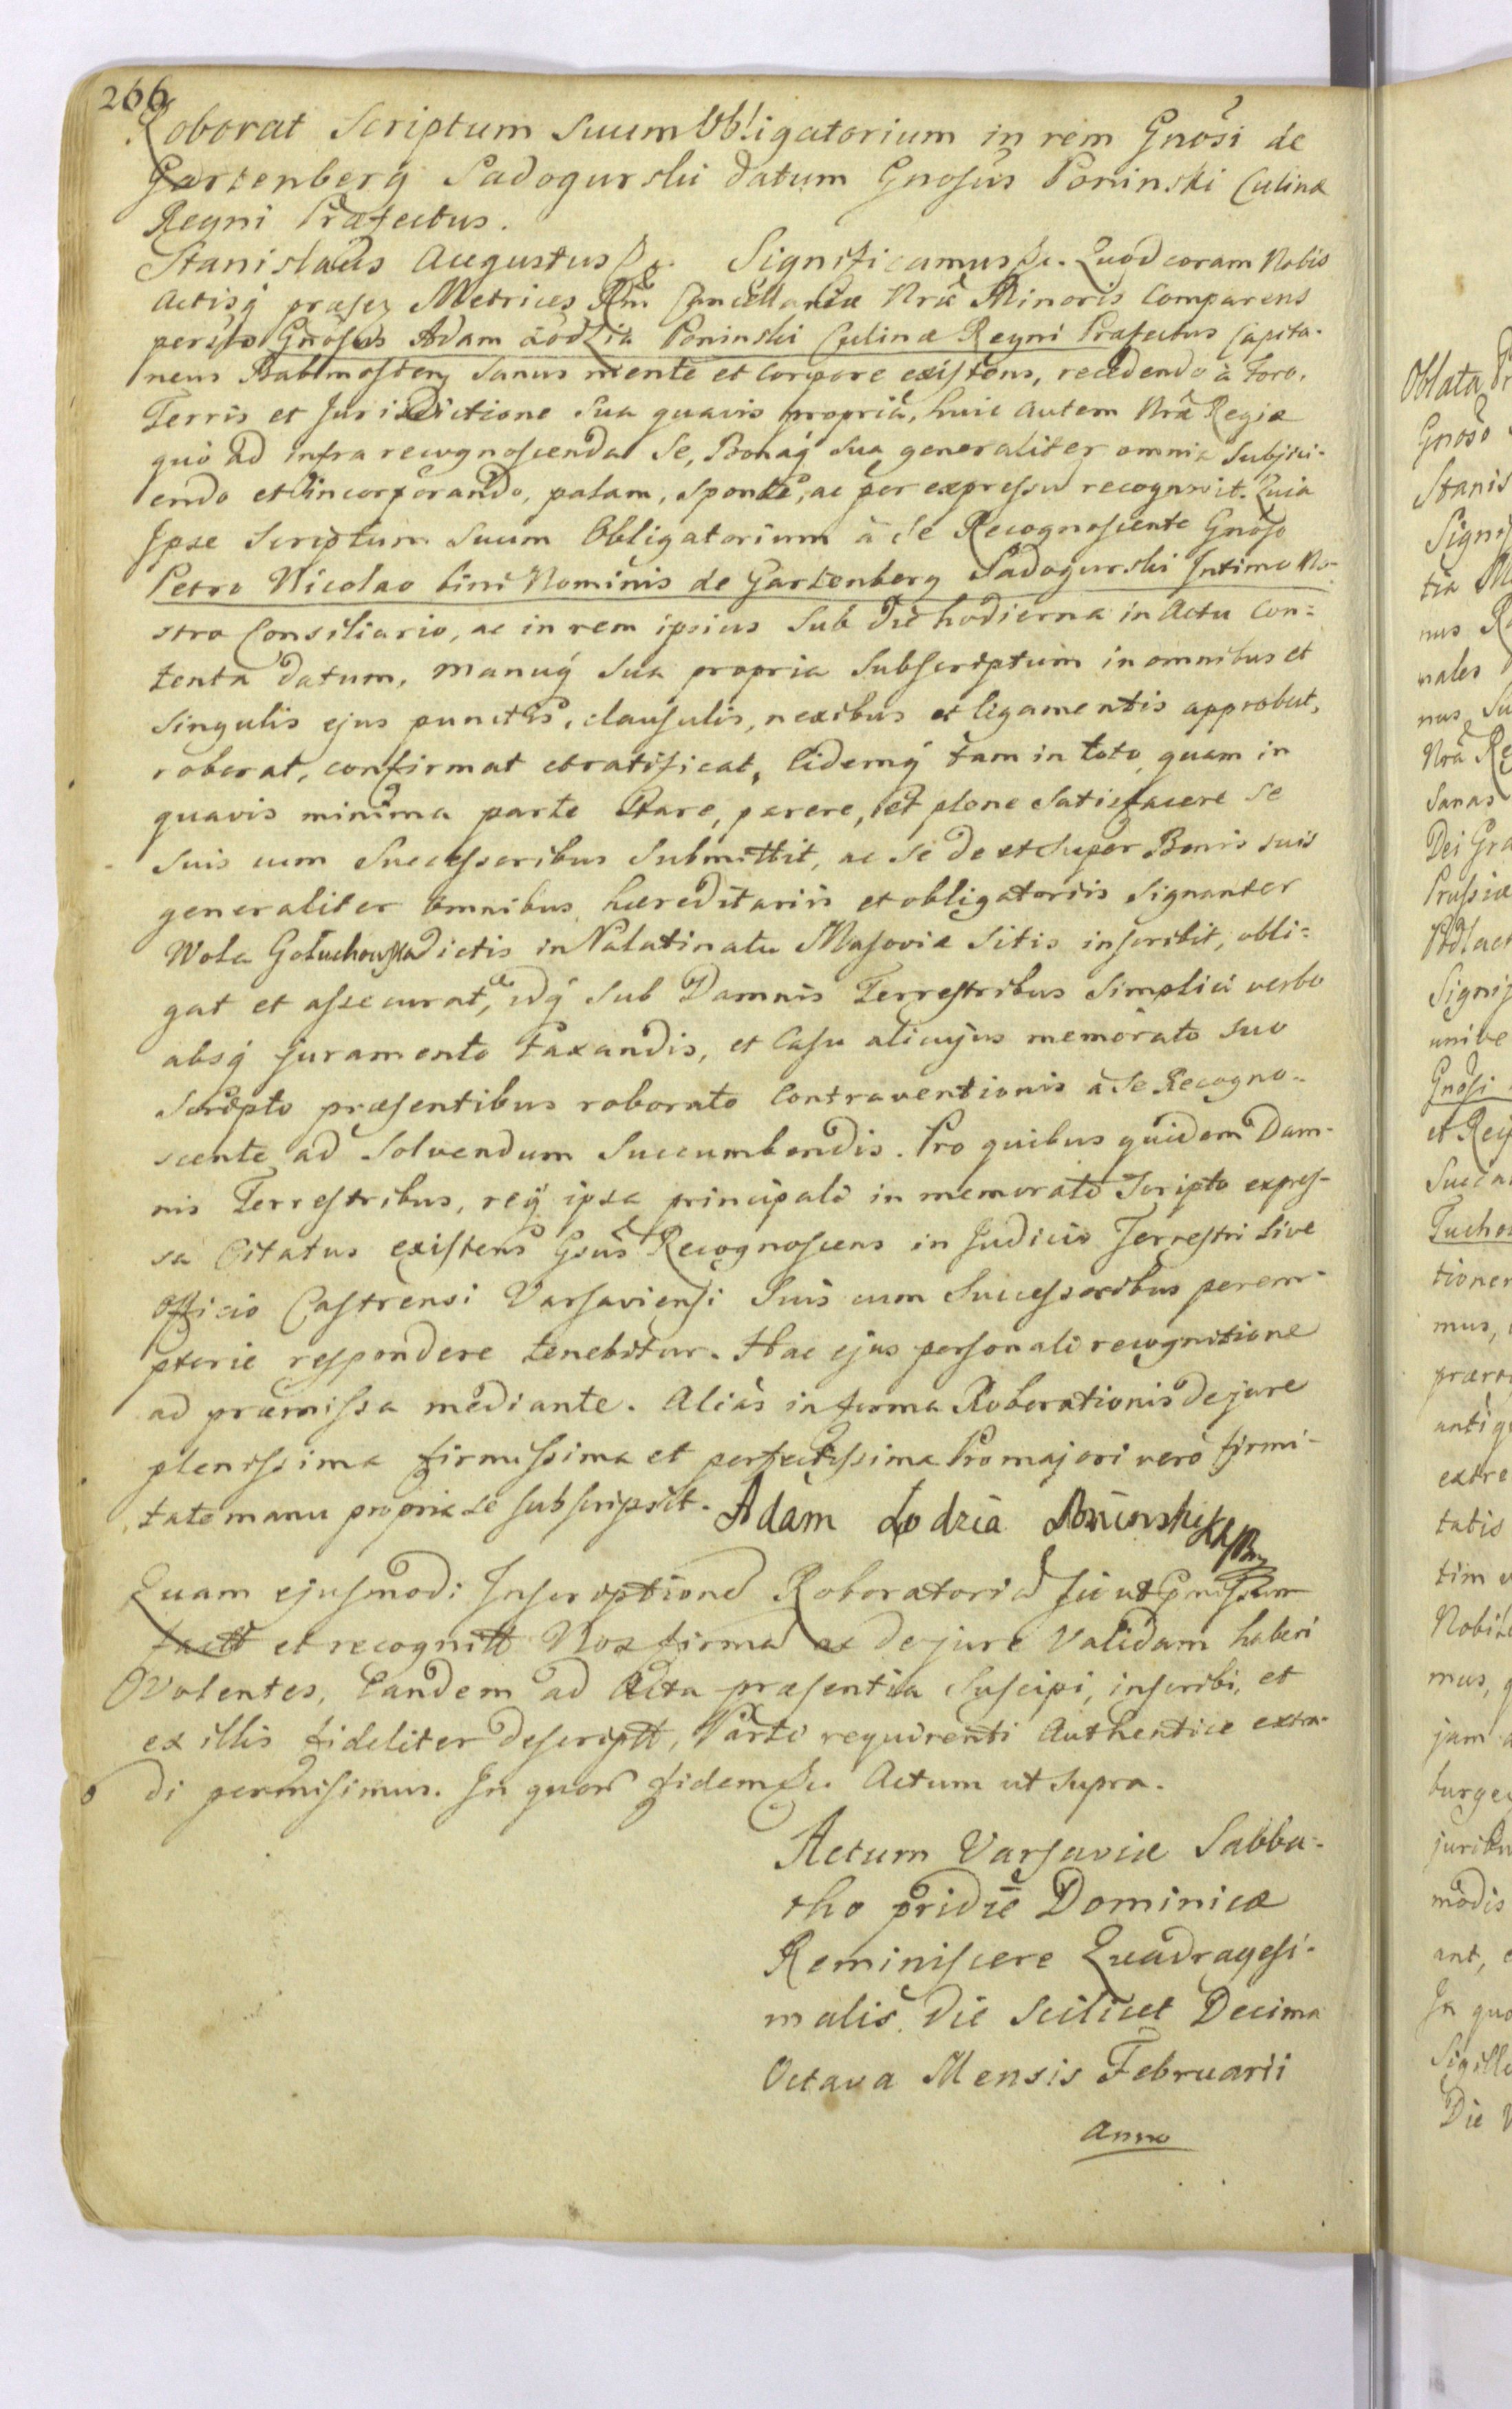 266
Roborat Scriptum Suum Obligatorium in rem Gnosi de
Gartenberg Sadogurski datum Gnosus Poninski Culinæ
Regni Præfectus.
Stanislaus Augustus &c. Significamus &c. Quod coram Nobis
Actisq præsez Metrices Rni Cancellariæ Nræ Minoris Comparens
persto Gnosus Adam Łodzia Poninski Culinæ Regni Præfectus Capita-
neus Babimosten Sanus mente et Corpore existens, recedendo à Foro,
Terris et Jurisdictione Sua quavis propriâ, huic autem Nrâ Regiæ
quò ad infra recognoscenda Se, Bonaq Sua generaliter omnia Subjici-
endo et incorporando, palam, sponte, ac per expressu recognovit. Quia
Ipse Scriptum Suum Obligatorium à Se Recognoscente Gnoso
Petro Nicolao bini Nominis de Gartenberg Sadogurski Intimo No-
stro Consiliario, ac in rem ipsius Sub die hodierna in Actu Con-
tenta datum, manuq Sua propria Subscriptum in omnibus et
Singulis ejus punctis, clausulis, nexibus et ligamentis approbat,
roborat, confirmat et ratificat, Eidemq tam in toto quam in
quavis minima parte Stare, parere, et plene Satisfacere Se
Suis cum Successoribus Submittit, ac Se de et Super Bonis suis
generaliter Omnibus hæreditariis et obligatoriis Signanter
Wola Gołuchowska dictis in Palatinatu Masoviæ Sitis inscribit, obli-
gat et assecurat, idq Sub Damnis Terrestribus Simplici verbo
absq juramento taxandis, et Casu alicujus memorato suo
Scripto præsentibus roborato Contraventionis à Se Recogno-
scente ad Solvendum Succumbendis. Pro quibus quidem Dam-
nis Terrestribus, req ipsa principali in memorato Scripto expres-
sa Citatus existens Gsus Recognoscens in Judicio Terrestri Sive
Officio Castrensi Varsaviensi Suis cum Successoribus perem-
ptorie respondere tenebitur. Hac ejus personali recognitione
ad præmissa mediante. Alias in forma Roborationis de jure
plenissima firmissima et perfectissima Pro majori vero firmi-
tate manu propria se subscripsit. Adam Łodzia Poninski
Quam ejusmodi Inscriptione Roboratoria sicut Pmissum
factt et recognitt Nos firma ac de jure Validam haberi
Volentes, Eandem ad Acta præsentia Suscipi, inscribi, et
ex illis fideliter descriptt, Parti requirenti Authentice extra-
di permisimus. In quor fidem &c. Actum ut Supra.
Actum Varsaviæ Sabba-
tho pridie Dominicæ
Reminiscere Quadragesi-
malis die Scilicet Decima
Octava Mensis Februarii
Anno
Oblata
Gnoso
Stanis
Signif
tia
nus
nales
nus Su
Nra Re
Sanas
Dei Gra
Prussiæ
Podlach
Signif
unive
Gnosi
et Rei
Tuchol
tioner
mus,
antiq
extre
tatis
tim
Nobil
mus,
jam
juribu
modis
ant,
In quo
Sigillo
Die